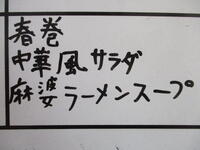 春巻
中華風サラダ
麻婆ラーメンスープ